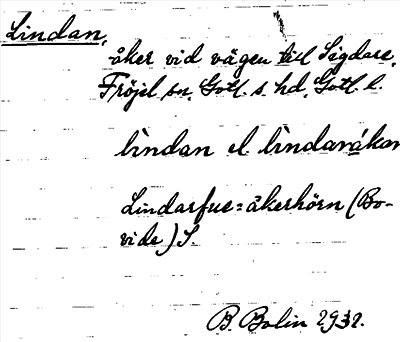 Lindan,
åker vid vägen till Sigdare,
Fröjel sn, Gotl. s. hd, Gotl. l.
lìndan el. lìndanákan
Lindarfue = åkerhörn (Bo-
vide) S.
B. Bolin 1932.